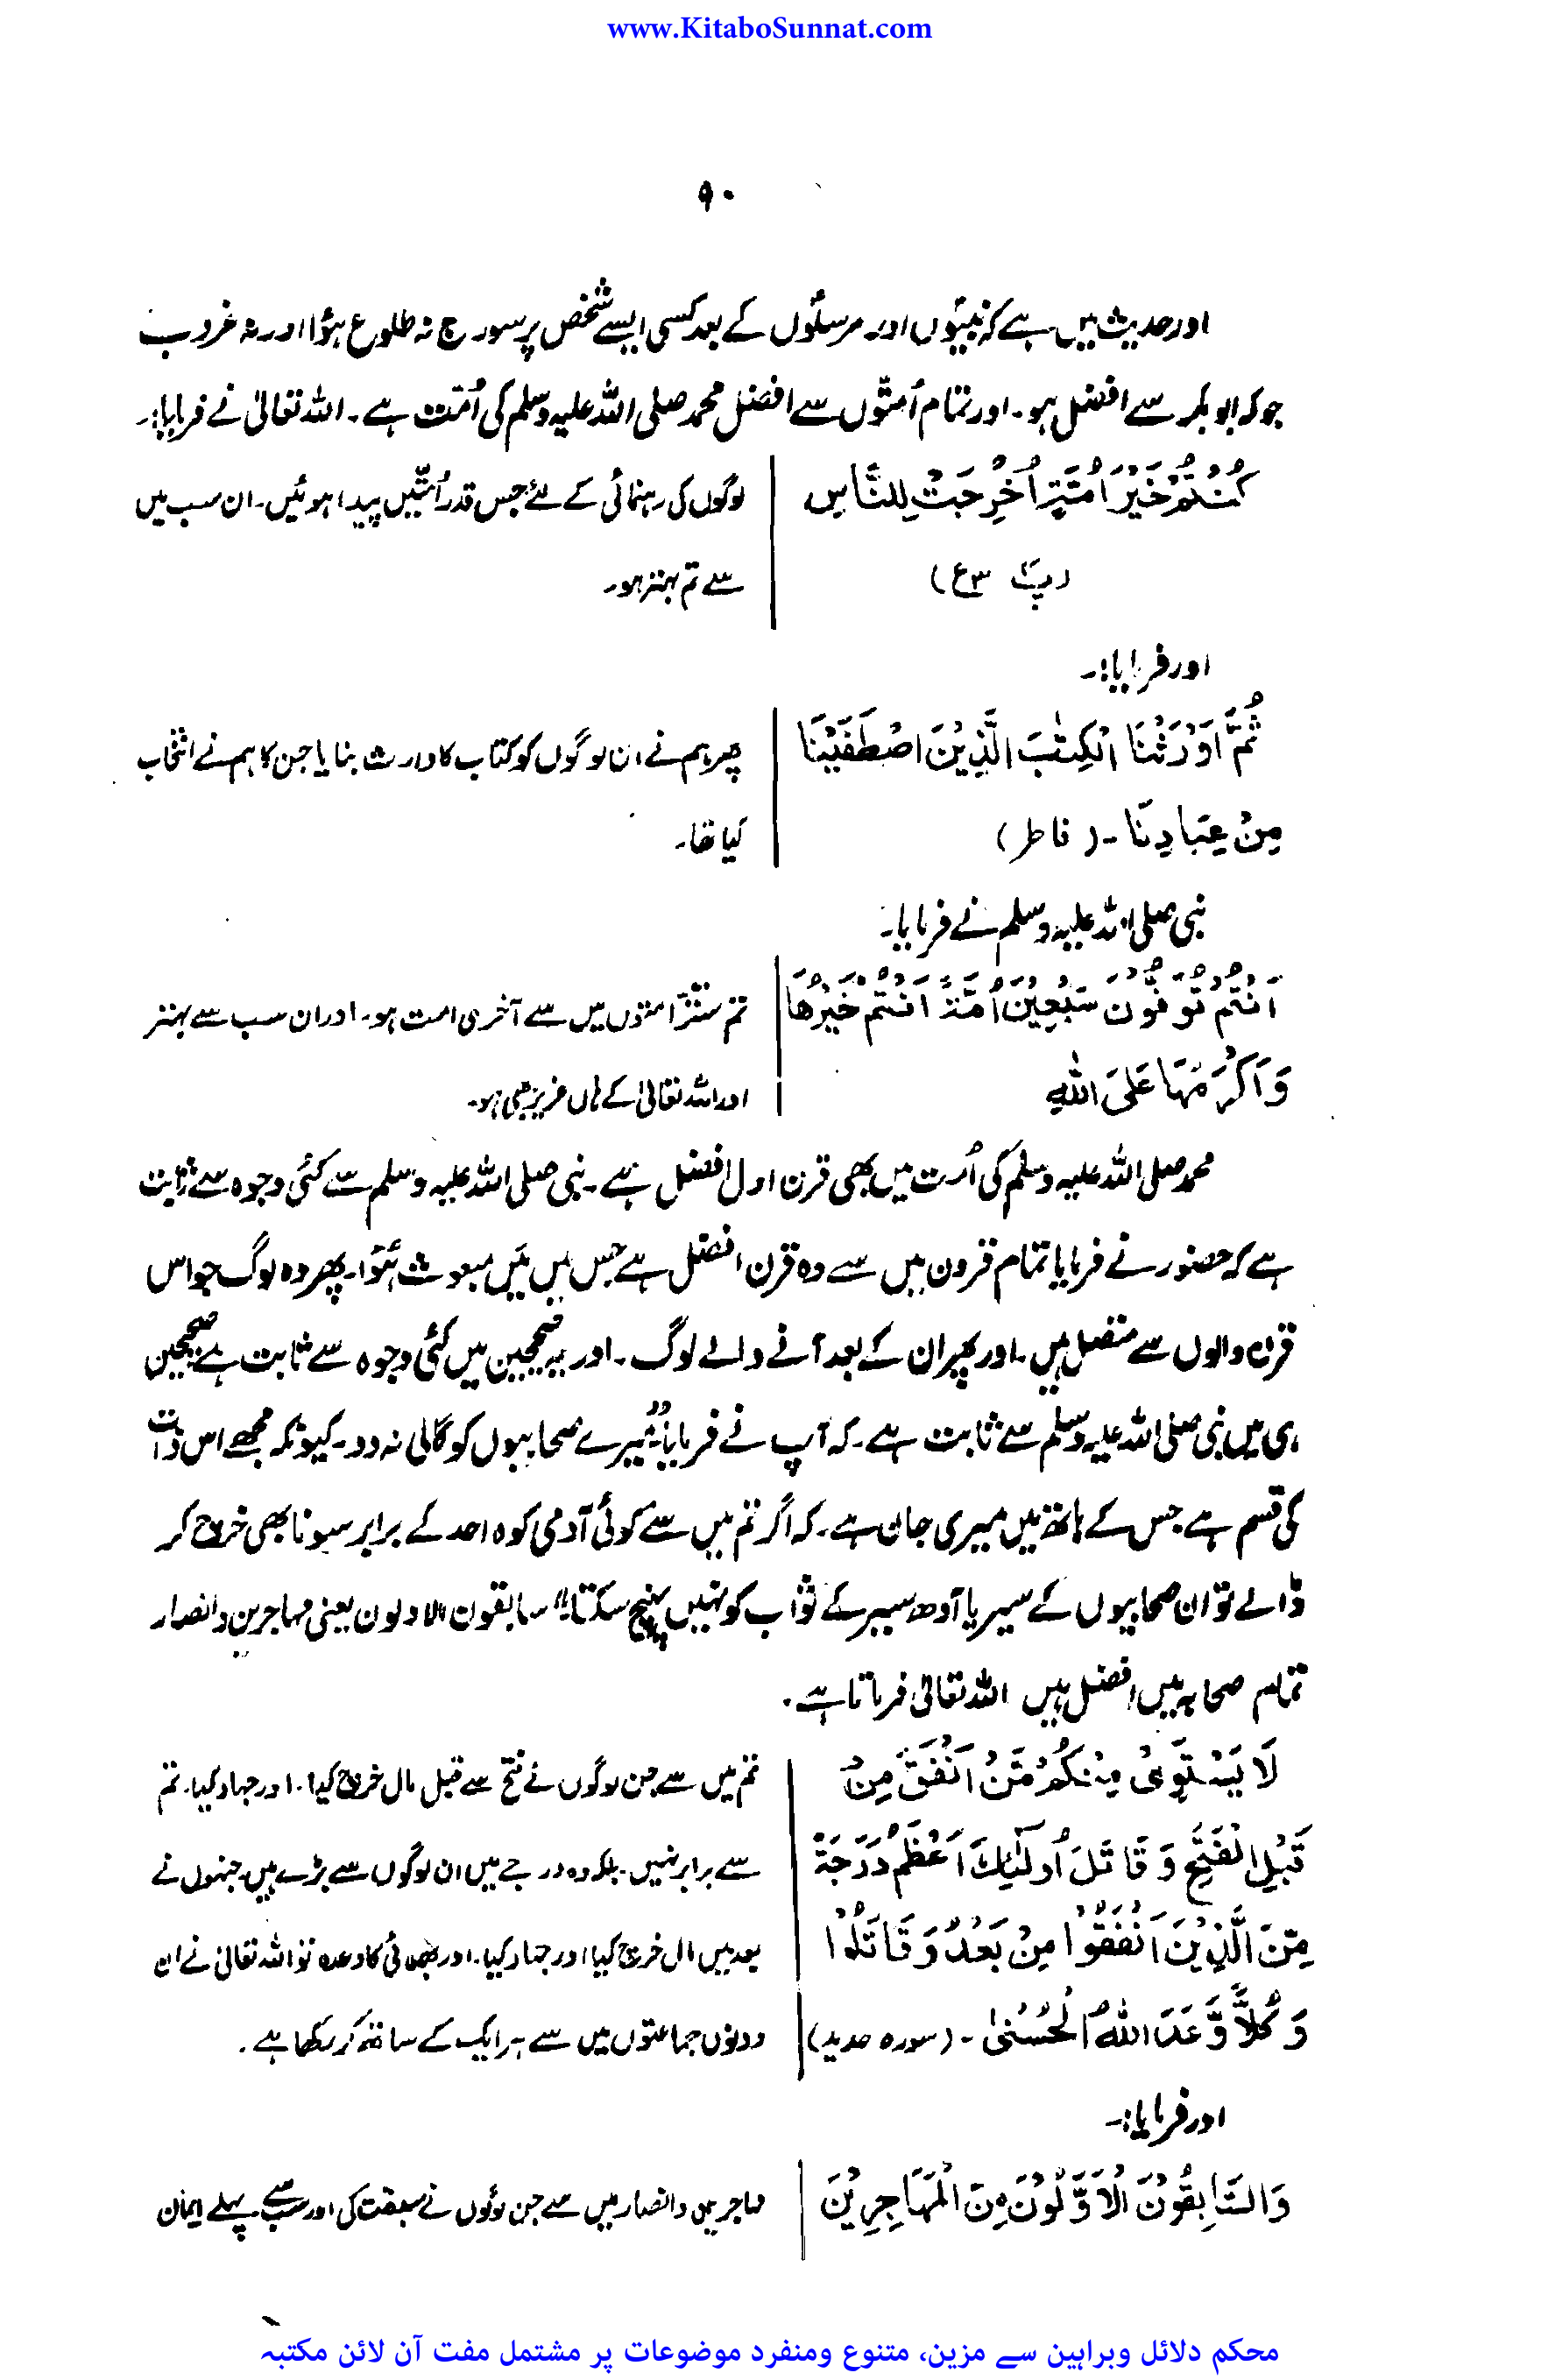 www.KitaboSunnat.com
۹۰
اور حدیث میں ہے کہ نبیوں اور مرسلوں کے بعد کسی ایسے شخص پر سورج نہ طلوع ہؤا اور نہ غروب
جو کہ ابوبکر سے افضل ہو۔ اور تمام اُمتّوں سے افضل محمد صلی اللہ علیہ وسلم کی اُمّت ہے۔ اللہ تعالیٰ نے فرمایا:۔
كُنْتُمْ خَيْرَ اُمَّةٍ اُخْرِجَتْ لِلنَّاسِ
(پ۴ ع۳)
لوگوں کی رہنمائی کے لئے جس قدر اُمتّیں پیدا ہوئیں۔ ان سب میں
سے تم بہتر ہو۔
اور فرمایا:۔
ثُمَّ اَوْرَثْنَا الْكِتٰبَ الَّذِيْنَ اصْطَفَيْنَا
مِنْ عِبَادِنَا ۔ (فاطر)
پھر ہم نے ان لوگوں کو کتاب کا وارث بنایا جن کا ہم نے انتخاب
کیا تھا۔
نبی صلی اللہ علیہ وسلم نے فرمایا۔
اَنْتُمْ تُوَفُّوْنَ سَبْعِيْنَ اُمَّةً اَنْتُمْ خَيْرُهَا
وَاَكْرَمُهَا عَلَى اللّٰهِ
تم ستّر امتوں میں سے آخری امت ہو۔ اور ان سب سے بہتر
اور اللہ تعالیٰ کے ہاں عزیز بھی ہو۔
محمد صلی اللہ علیہ وسلم کی اُمت میں بھی قرن اول افضل ہے۔ نبی صلی اللہ علیہ وسلم سے کئی وجوہ سے ثابت
ہے کہ حضور نے فرمایا تمام قرون میں سے وہ قرن افضل ہے جس میں مَیں مبعوث ہُوا۔ پھر وہ لوگ جو اس
قرن والوں سے متصل ہیں۔ اور پھر ان کے بعد آنے والے لوگ۔ اور یہ صحیحین میں کئی وجوہ سے ثابت ہے صحیحین
ہی میں نبی صلی اللہ علیہ وسلم سے ثابت ہے۔ کہ آپ نے فرمایا "میرے صحابیوں کو گالی نہ دو۔ کیونکہ مجھے اس ذات
کی قسم ہے جس کے ہاتھ میں میری جان ہے۔ کہ اگر تم میں سے کوئی آدمی کوہ احد کے برابر سونا بھی خرچ کر
ڈالے تو ان صحابیوں کے سیر یا آدھ سیر کے ثواب کو نہیں پہنچ سکتا"۔ سابقون الاولون یعنی مہاجرین وانصار
تمام صحابہ میں افضل ہیں اللہ تعالیٰ فرماتا ہے۔
لَا يَسْتَوِيْ مِنْكُمْ مَّنْ اَنْفَقَ مِنْ
قَبْلِ الْفَتْحِ وَقَاتَلَ اُولٰٓئِكَ اَعْظَمُ دَرَجَةً
مِّنَ الَّذِيْنَ اَنْفَقُوْا مِنْ بَعْدُ وَقَاتَلُوْا
وَكُلًّا وَّعَدَ اللّٰهُ الْحُسْنٰى ۔ (سورہ حدید)
تم میں سے جن لوگوں نے فتح سے قبل مال خرچ کیا۔ اور جہاد کیا۔ تم
سے برابر نہیں۔ بلکہ وہ درجے میں ان لوگوں سے بڑے ہیں۔ جنہوں نے
بعد میں مال خرچ کیا اور جہاد کیا۔ اور بھلائی کا وعدہ تو اللہ تعالیٰ نے ان
دونوں جماعتوں میں سے ہر ایک کے ساتھ کر رکھا ہے۔
اور فرمایا:۔
وَالسَّابِقُوْنَ الْاَوَّلُوْنَ مِنَ الْمُهَاجِرِيْنَ
مہاجرین وانصار میں سے جن لوگوں نے سبقت کی اور سب سے پہلے ایمان
محکم دلائل وبراہین سے مزین، متنوع ومنفرد موضوعات پر مشتمل مفت آن لائن مکتبہ